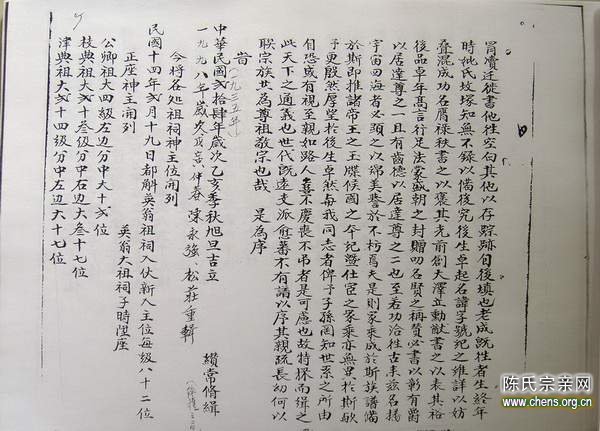 冐瀆迁徙書他徃空向其他以存踪跡旬後塡也老成旣徃者生終年
時妣氏坟塚知無不錄以俻後究後生卓起名諱字號紀之維詳以妨
叠混成功名膺禄秩書之以褒其先前創大澤立勳猷書之以表其裕
後品卓年髙言行足法蒙盛朝之封贈叨名賢之稱賛必書以彰有爵
以居達尊之一且有齒德以居達尊之二也至若功洽徃古来兹名揚
宇宙四海者必頭之以綿美誉於不朽焉夫是則家乗成於斯族譜偹
於斯即推諸帝王之玉牒候國之本紀暨仕宦之家乘亦無異於斯欤
于更殷然厚望於後生卓然每我同志者俾子子孫罔知世系之所由
自恐或有視至親如路人喜不慶喪不弔者是可慮也故特採而缉之
此天下之通義也世代旣逺支派愈蕃不有譜以序其親疏長幼何以
联宗族共為尊祖敬宗也哉 是為序
旹(一九三五年)
中華民國貳拾肆年歲次乙亥季秋旭旦吉立
一九九八年歲次戊寅仲春 陳永強、松莊重輯 纘常脩缉
今將各処祖祠神主位開列
民國十四年貳月十九日都斛英翁祖祠入伙新入主位每級八十二位
正座神主開列 英翁大祖祠子時陞座
公卿祖大四級左边分中大十貳位
枝典祖大貳十叁级分中右边大叁十七位
津典祖大貳十四级分中左边大十七位
陈氏宗亲网
www.chens.org.cn